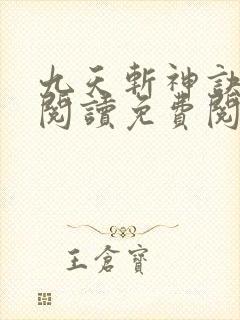 九天斬神訣
閱讀免費閱
王倉寶